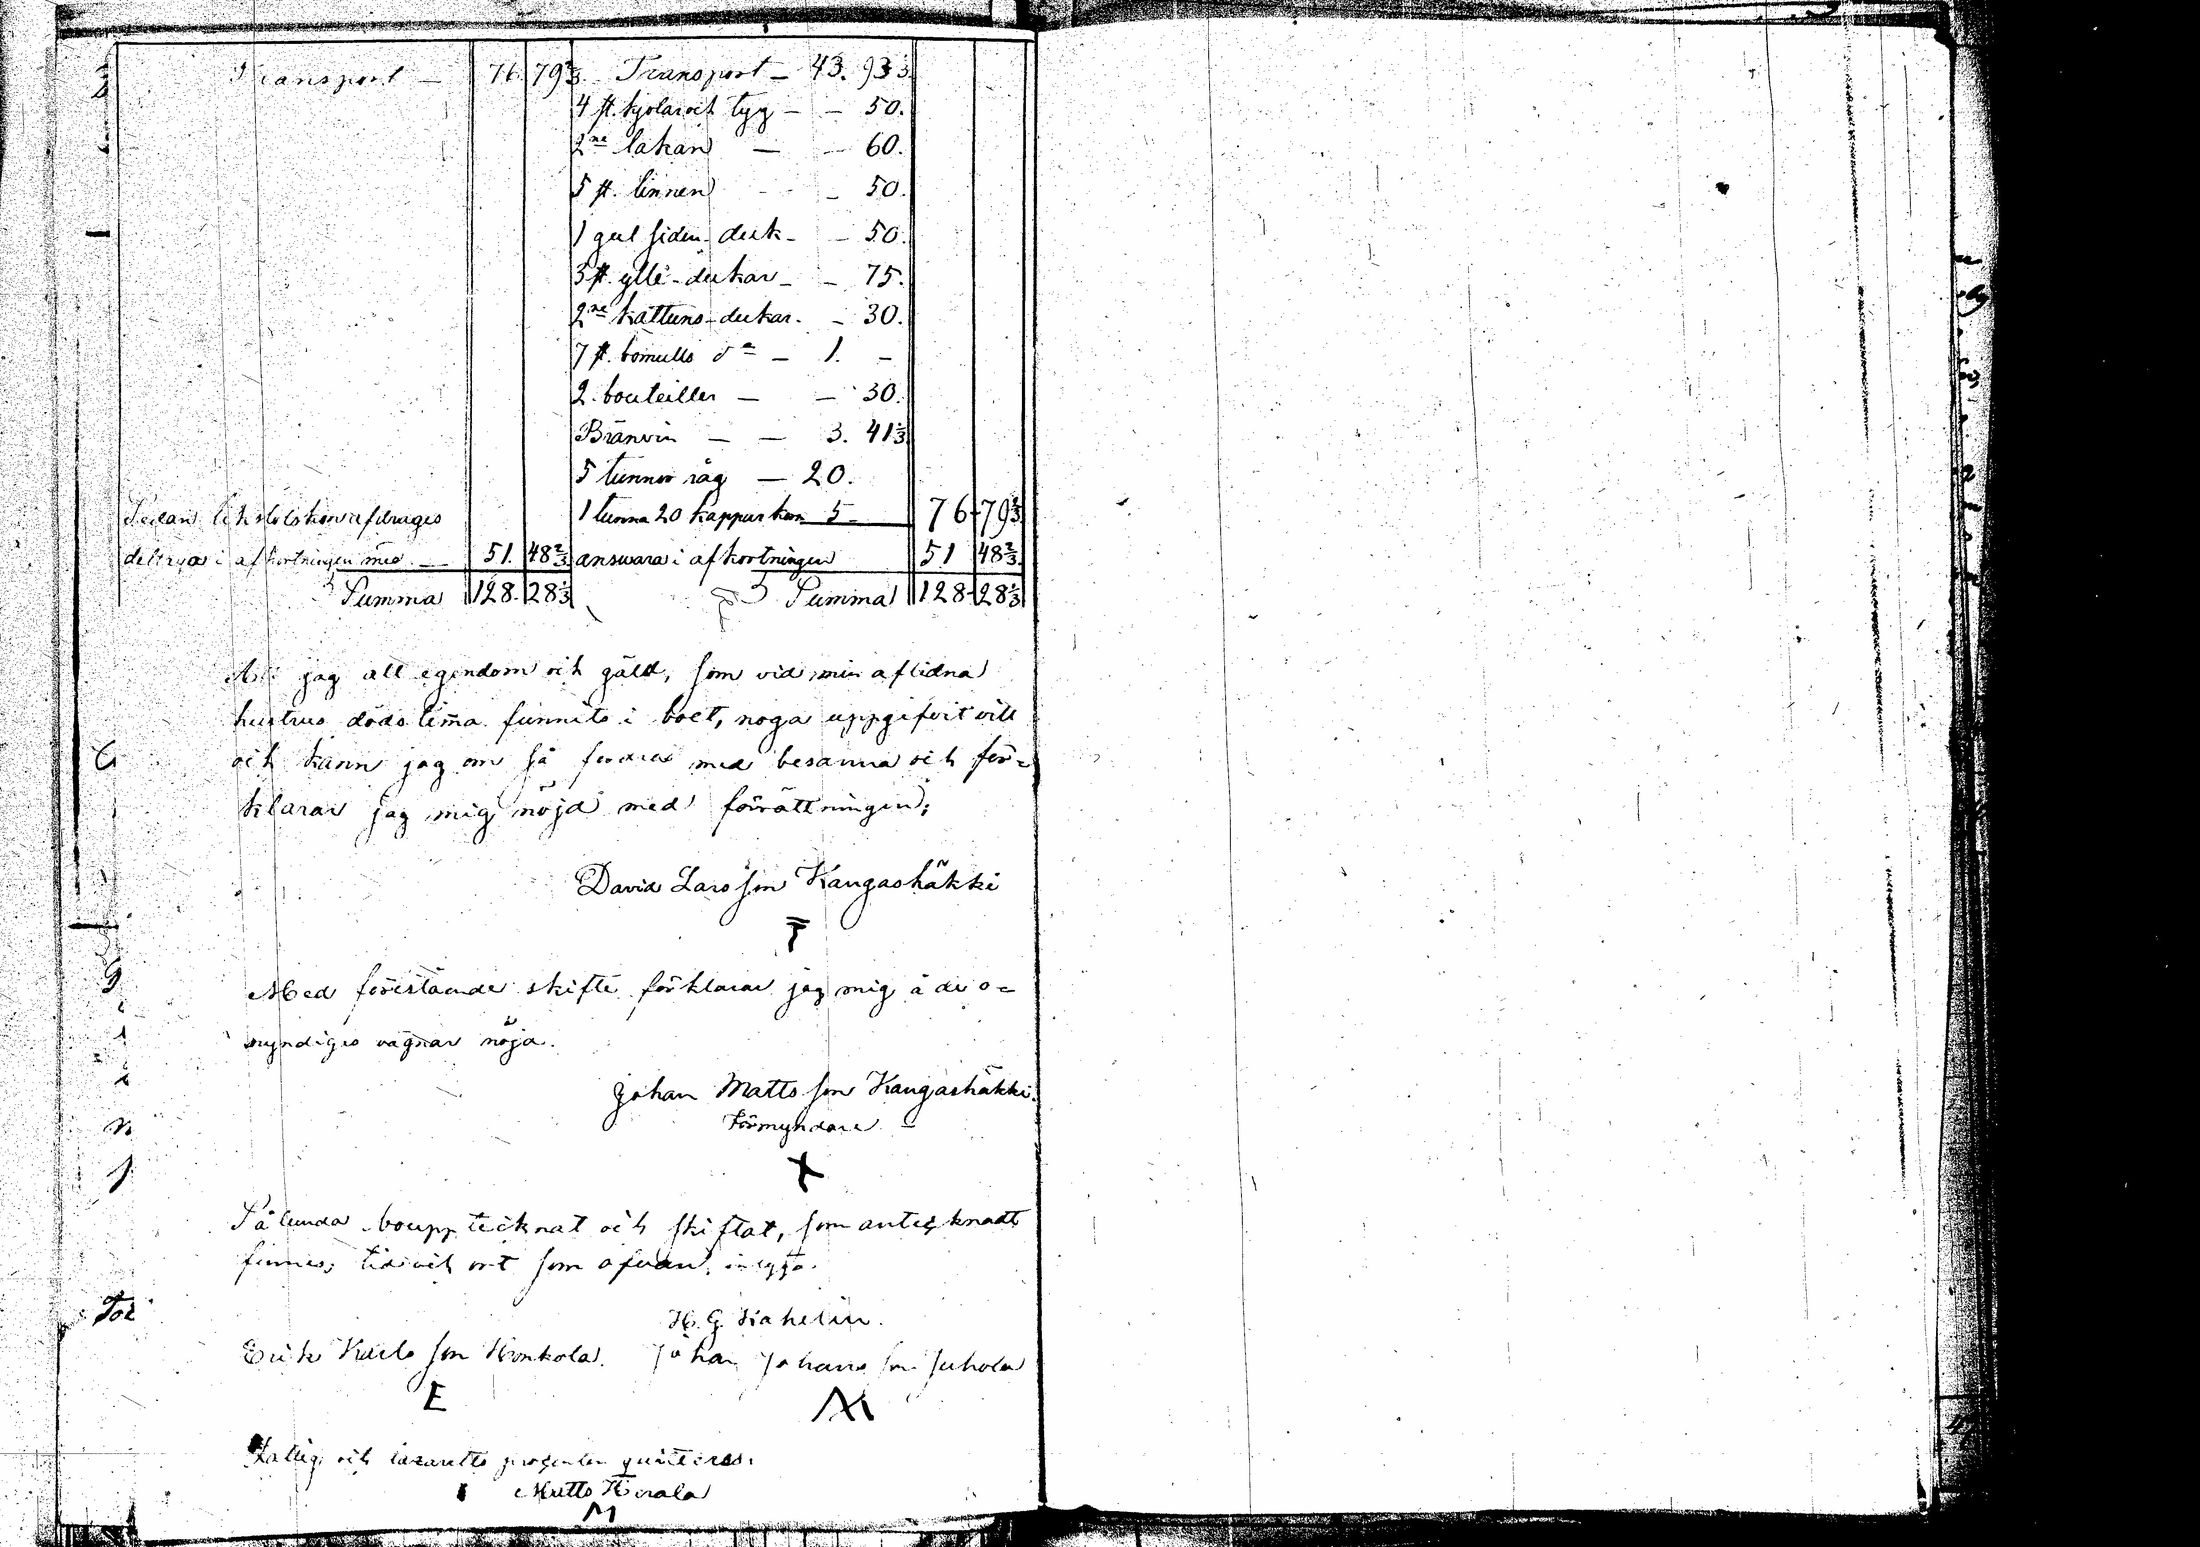 Transport — 76. 79⅓. Transport — 43. 93⅓.
4 st. kjolar och tyg — — 50.
2ne lakan — — 60.
5 st. linnen — 50.
1 gul siden-duk — — 50.
3 st. ylle-dukar — — 75.
2ne kattuns-dukar. — 30.
7 st. bomulls do — 1. —
2. bouteiller — — 30.
Bränvin — — 3. 41⅓
5 tunnor råg — 20.
1 tunna 20 kappar korn 5 — 76. 79⅓
Sedan afdrages
i afkortningen med — 51. 48⅔ answara i afkortningen 51 48⅔.
Summa 128. 28⅓ Summa 128. 28⅓
Att jag all egendom och gäld, som vid min aflidna
hustrus dödstima funnits i boet, noga uppgifvit vill
och kann jag om så fordras med besanna och för=
klarar jag mig nöjd med förrättningen;
David Larsson Kangashäkki
Med förestående skifte förklarar jag mig å de o=
myndiges vägnar nöjd.
Johan Matts son Kangashäkki.
Förmyndare —
X
Sålunda boupptecknat och skiftat, som antecknadt
finnes; tid och ort som ofvan,
H. G. Kahelin.
Erik Karls son Honkola. Johan Johans son Juhola
E M
Fattig och lazaretts procenten quitteras.
Matts
M